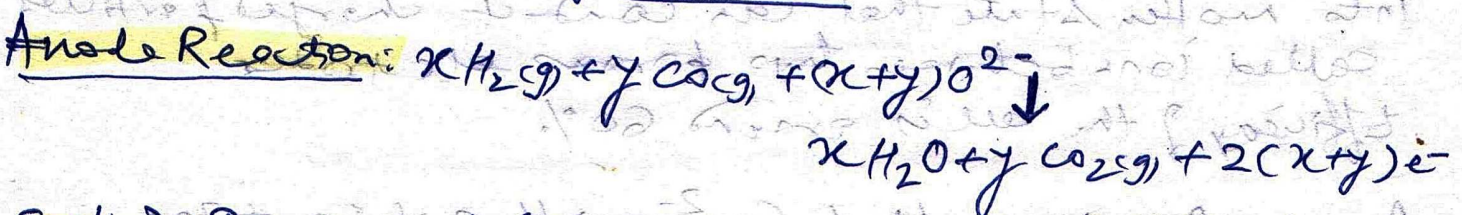 Anode Reaction: xH₂(g) + y CO(g) + (x+y)O²⁻ ↓
xH₂O + y CO₂(g) + 2(x+y)e⁻